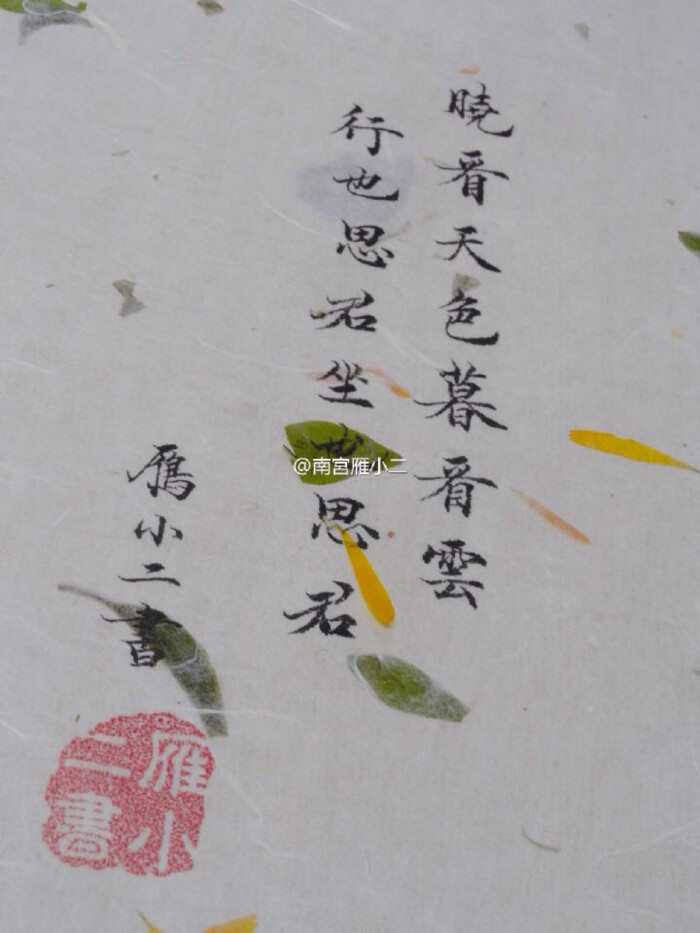 曉看天色暮看雲
行也思君坐也思君
雁小二書
@南宮雁小二
雁小二書